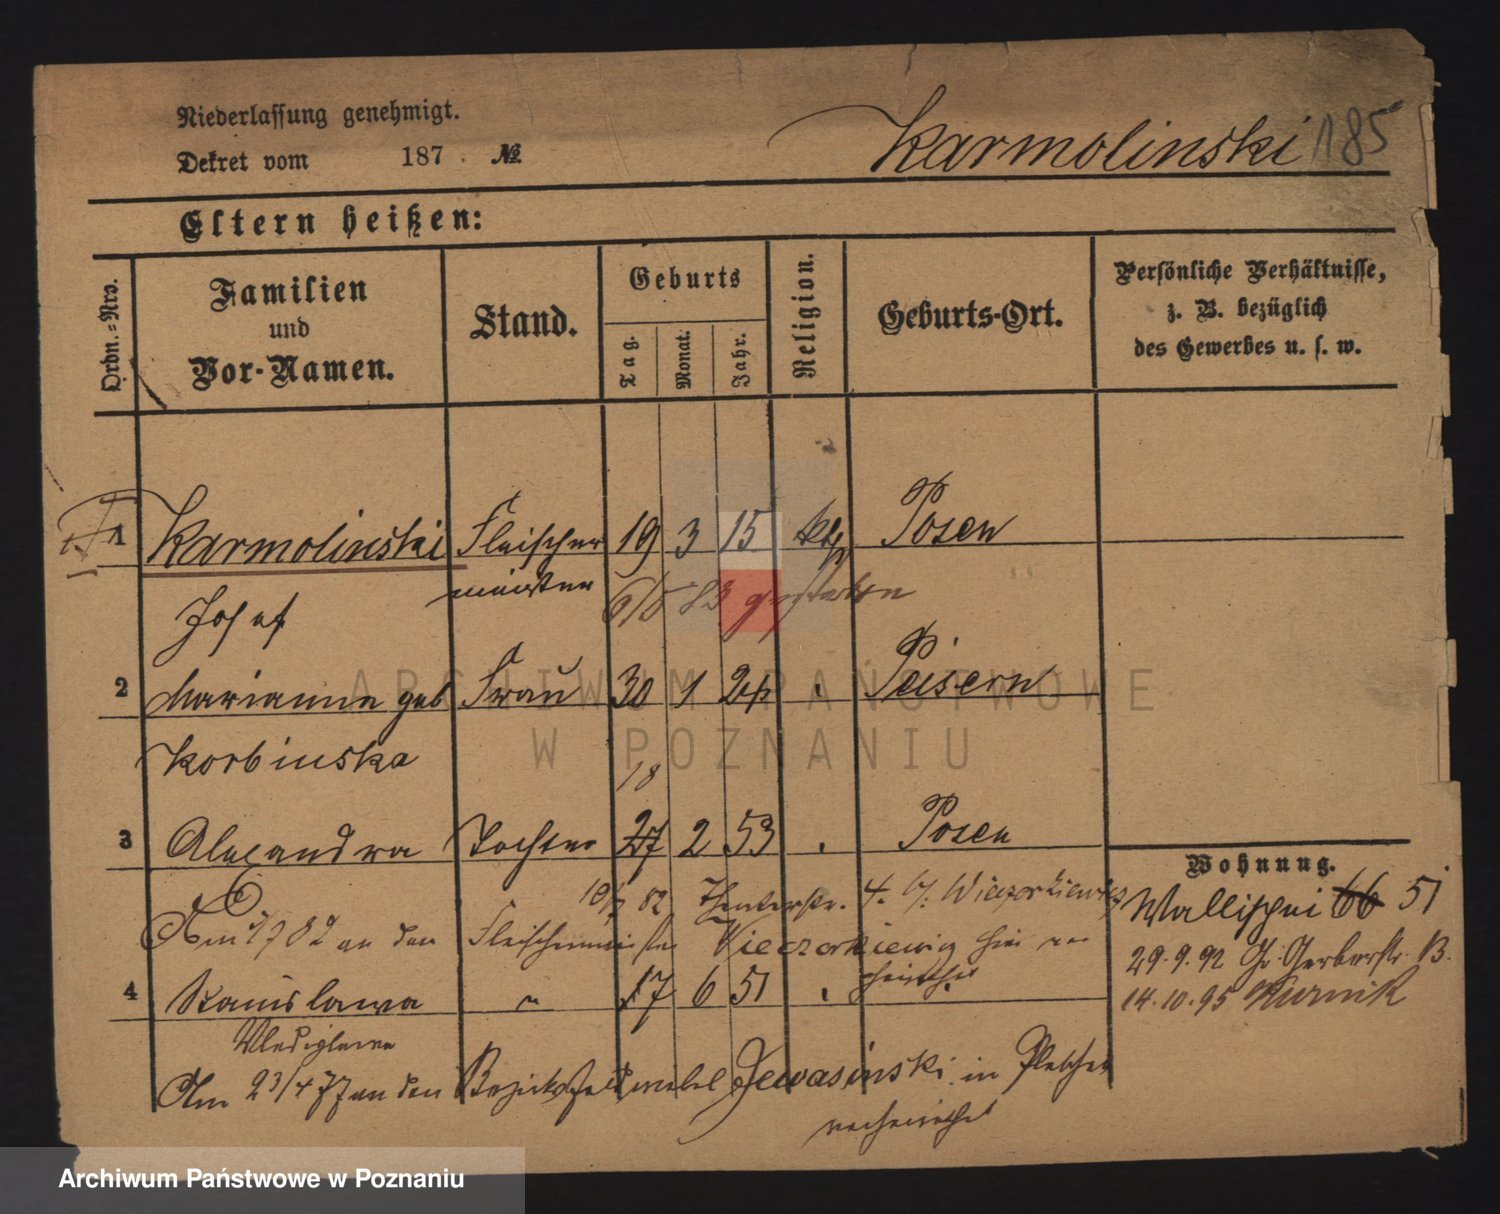 Niederlassung genehmigt.
Dekret vom 187 . №
Karmolinski 185
Eltern heißen:
Ordn.=Nrs. Familien und Vor-Namen. Stand. Geburts Tag. Monat. Jahr. Religion. Geburts-Ort. Persönliche Verhältnisse, z. B. bezüglich des Gewerbes u. s. w.
1 Karmolinski Fleischer 19 3 15 kth Posen
Josef meister 6/5 83 gestorben
2 Marianna geb Frau 30 1 24 . Peisern
Korbinska
18
3 Alexandra Tochter 27 2 53 . Posen
Wohnung.
Wallischei 66 51
82 4. Wieczorkiewicz
Am 82 an den Fleischermeister Wieczorkiewicz hier ver
29.9.92 Gr. Gerberstr. 13.
heirathet
4 Stanislawa " 17 6 51 .
14.10.95 Kurnik
Wladislawa
Am 23/4 77 an den Bezirksfeldwebel Jewasinski in Pleschen
verheirathet
ARCHIWUM PAŃSTWOWE
W POZNANIU
Archiwum Państwowe w Poznaniu